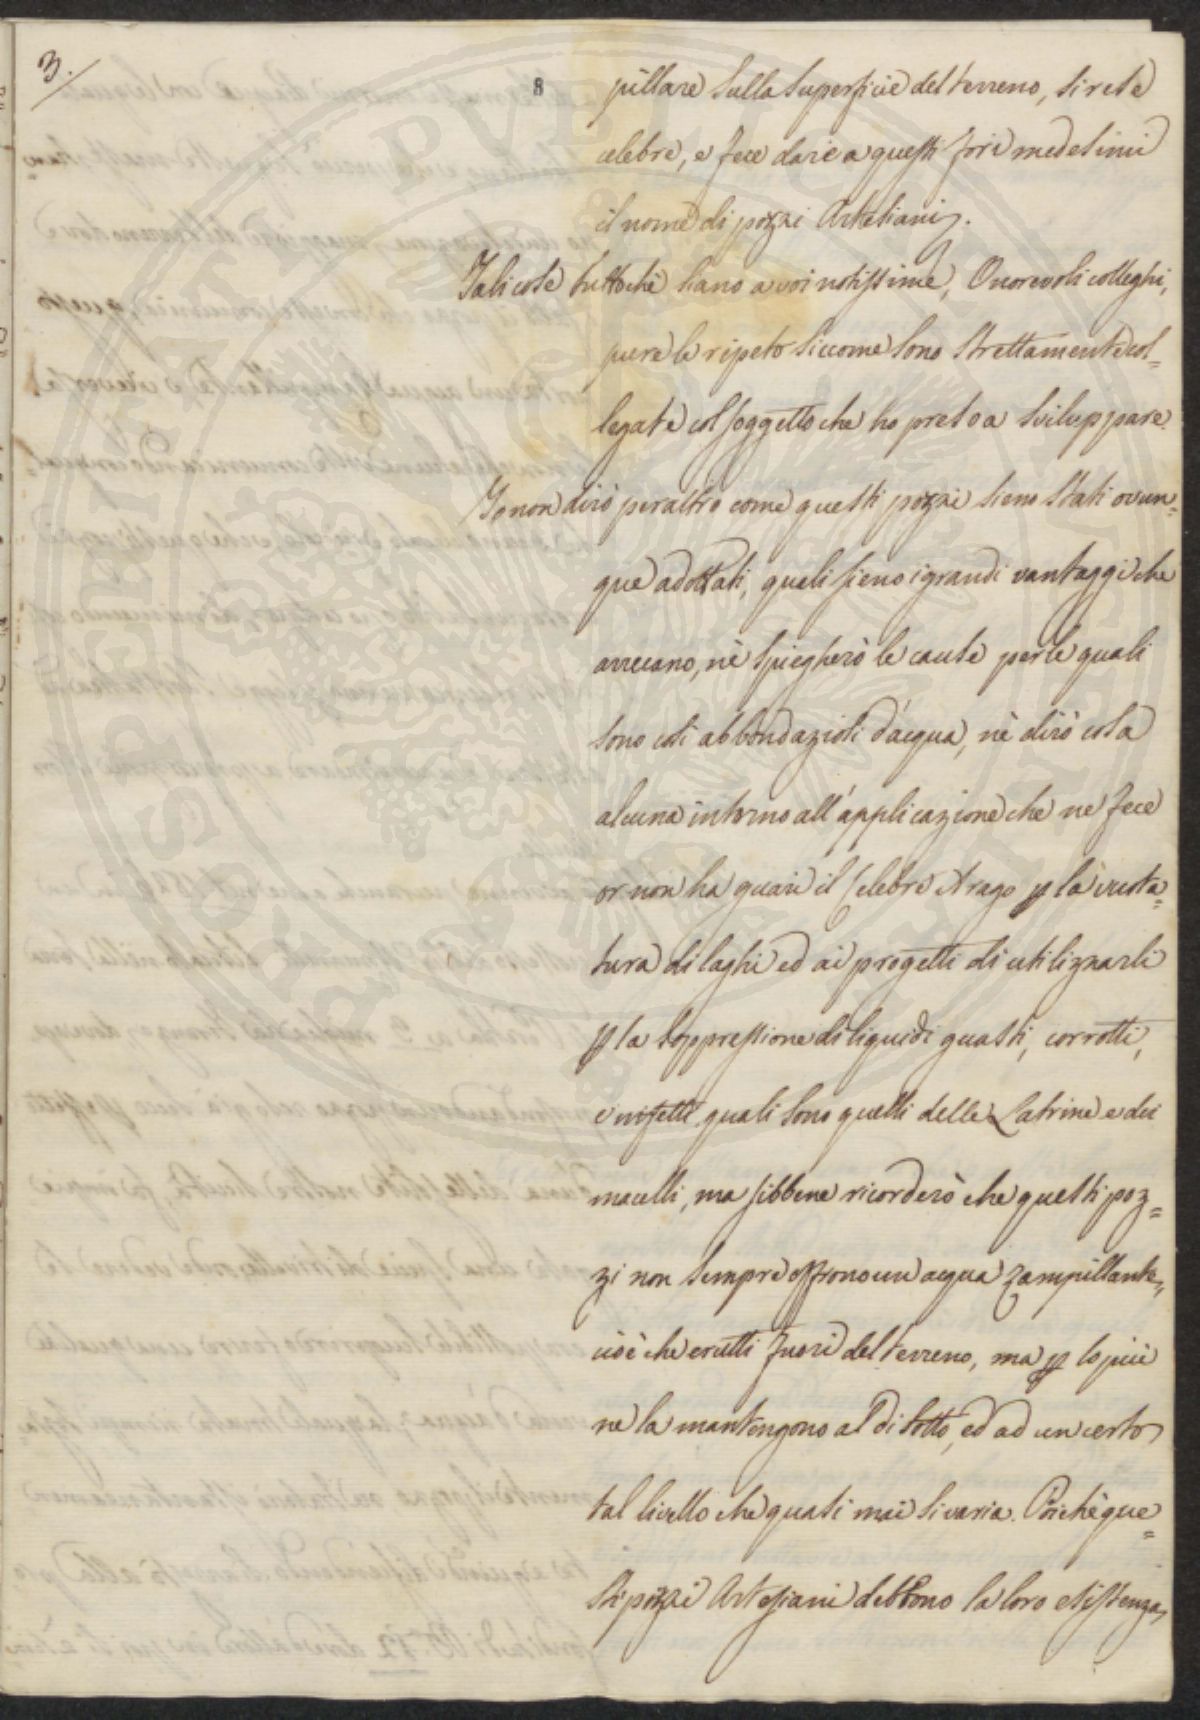 3.
8
pillare sulla superficie del terreno, si rese
celebre, e fece dare a questi fori medesimi
il nome di pozzi Artesiani.
Tali cose tuttochè siano a voi notissime, Onorevoli colleghi,
pure le ripeto siccome sono strettamente col=
legate col soggetto che ho preso a sviluppare.
Io non dirò peraltro come questi pozzi sieno stati ovun=
que adottati, quali sieno i grandi vantaggi che
arrecano, nè spiegherò le cause per le quali
sono così abbondazioli d'acqua, nè dirò cosa
alcuna intorno all'applicazione che ne fece
or non ha guari il Celebre Arago p la vuota=
tura di laghi ed ai progetti di utilizzarli
p la soppressione di liquidi guasti, corrotti,
e infetti quali sono quelli delle Latrine e dei
macelli, ma sibbene ricorderò che questi poz=
zi non sempre offrono un acqua zampillante,
cioè che erutti fuori del terreno, ma p lo più
ne la mantengono al di sotto, ed ad un certo
tal livello che quasi mai si varia. Poichè que=
sti pozzi Artesiani debbono la loro esistenza
PVBLICA